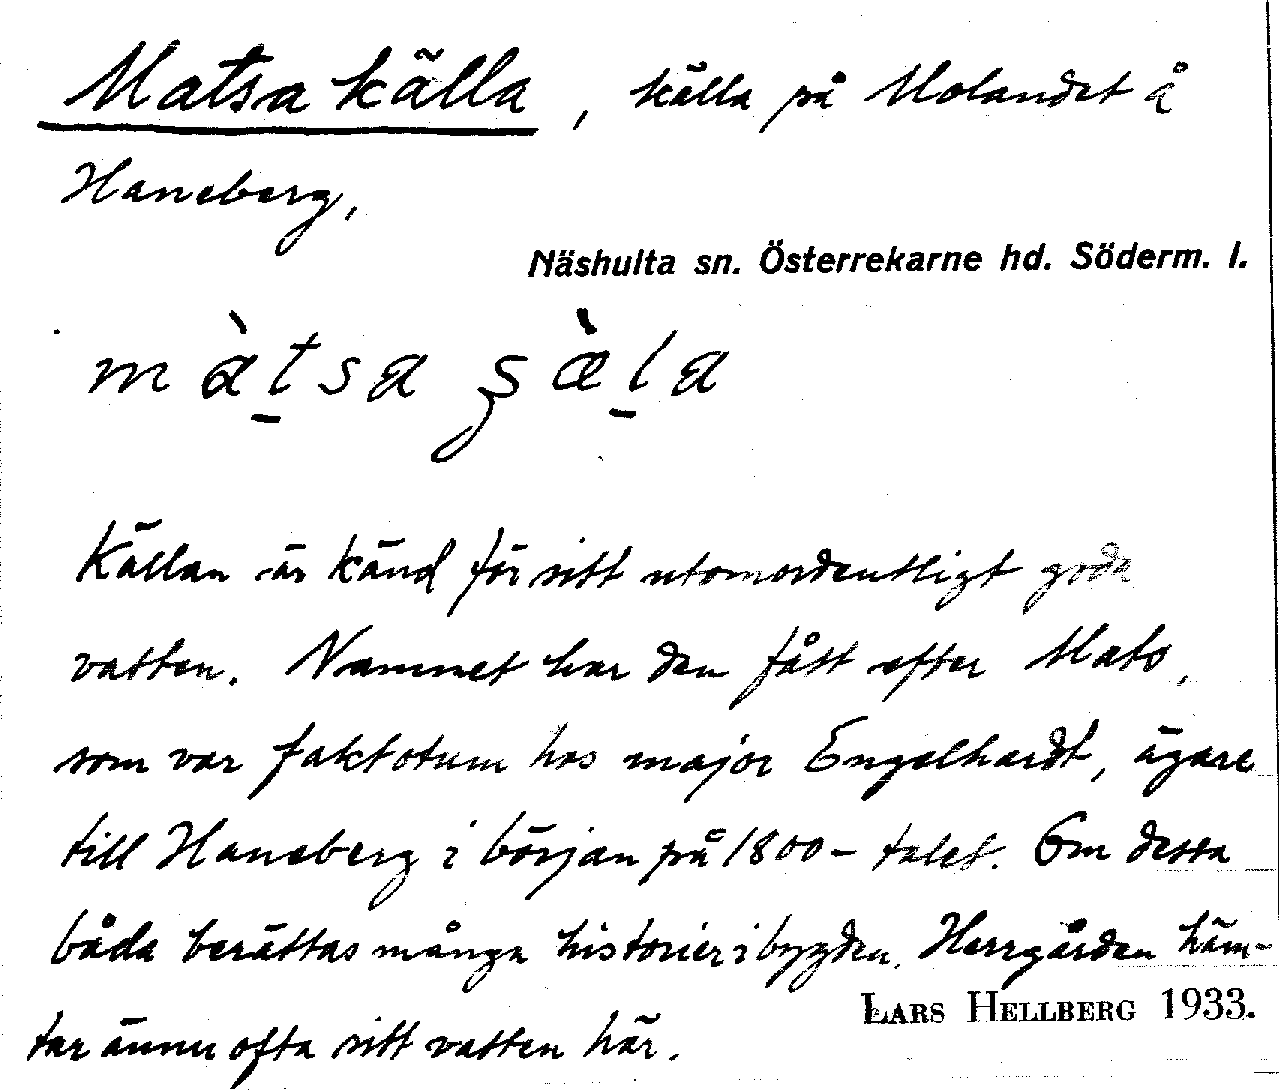 Matsa källa, källa på Molandet å
Haneberg,
Näshulta sn. Österrekarne hd. Söderm. l.
màṯsa ʂæ̀ḻa
Källan är känd för sitt utomordentligt goda
vatten. Namnet har den fått efter Mats,
som var faktotum hos major Engelhardt, ägare
till Haneberg i början på 1800-talet. Om dessa
båda berättas många historier i bygden. Herrgården häm-
tar ännu ofta sitt vatten här.
LARS HELLBERG 1933.